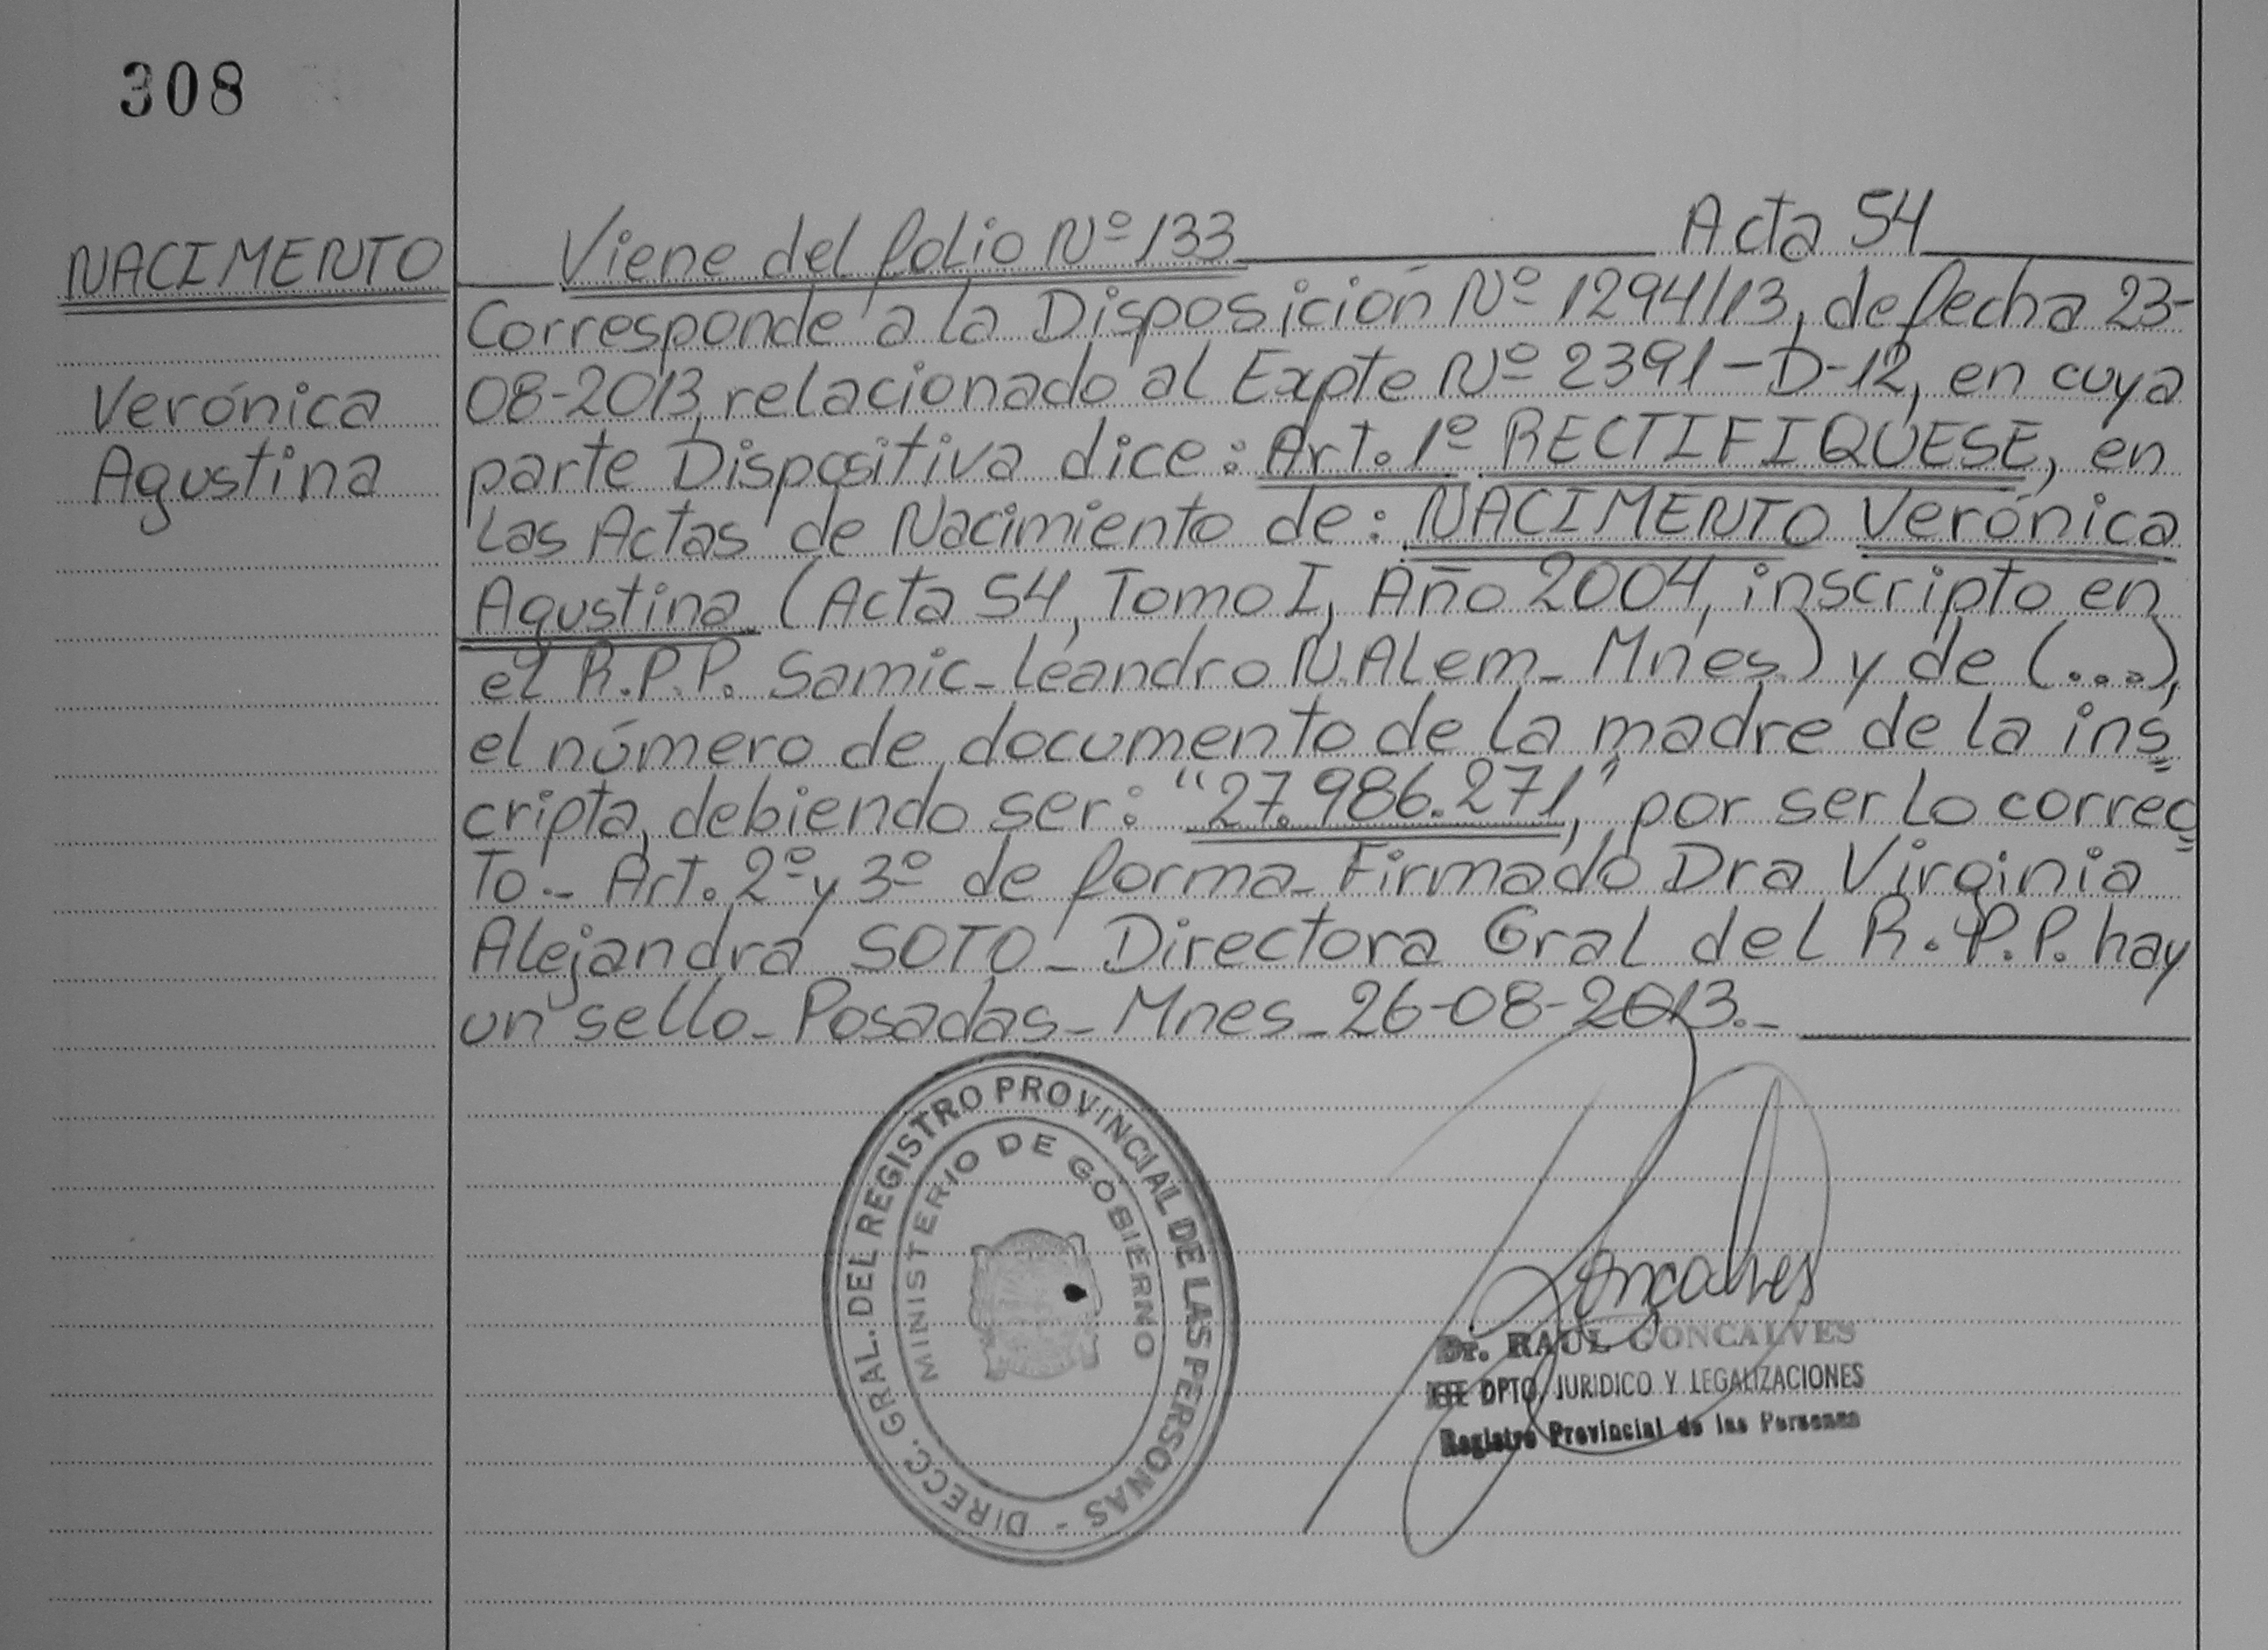 308
NACIMENTO
Verónica
Agustina
Viene del folio Nº 133 Acta 54
Corresponde a la Disposición Nº 1294/13, de fecha 23-
08-2013, relacionado al Expte Nº 2391-D-12, en cuya
parte Dispositiva dice: Art. 1º RECTIFIQUESE, en
las Actas de Nacimiento de: NACIMENTO Verónica
Agustina (Acta 54, Tomo I, Año 2004, inscripto en
el R.P.P. Samic-Leandro N. Alem- Mnes.) y de (...),
el número de documento de la madre de la ins
cripta, debiendo ser: "27.986.271", por ser lo correc
To.- Art. 2º y 3º de forma- Firmado Dra Virginia
Alejandra SOTO- Directora Gral del R.P.P. hay
un sello- Posadas- Mnes- 26-08-2013.-
DIRECC. GRAL. DEL REGISTRO PROVINCIAL DE LAS PERSONAS -
MINISTERIO DE GOBIERNO
Gonçalves
Dr. RAUL GONCALVES
DPTO. JURIDICO Y LEGALIZACIONES
Registro Provincial de las Personas